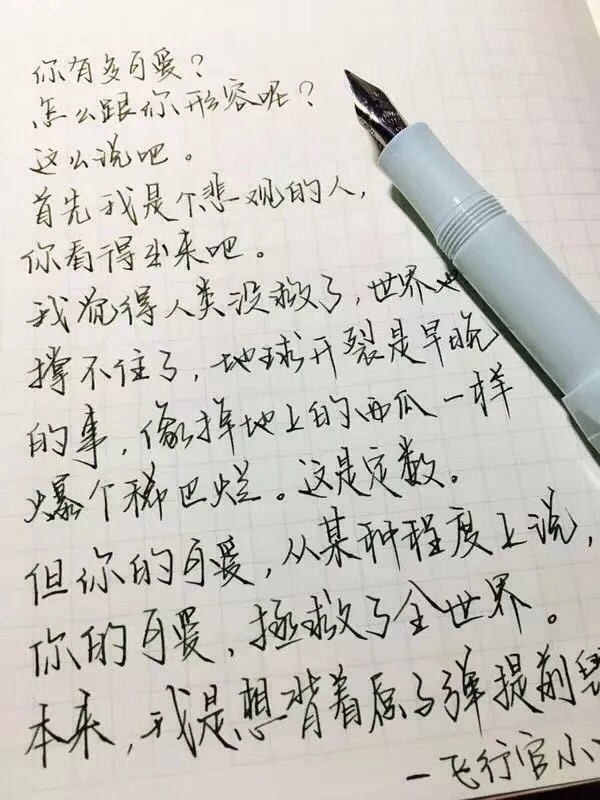 你有多可爱？
怎么跟你形容呢？
这么说吧。
首先我是个悲观的人，
你看得出来吧。
我觉得人类没救了，世界也
撑不住了，地球开裂是早晚
的事，像掉地上的西瓜一样
爆个稀巴烂。这是定数。
但你的可爱，从某种程度上说，
你的可爱，拯救了全世界。
本来，我是想背着原子弹提前
一飞行官小